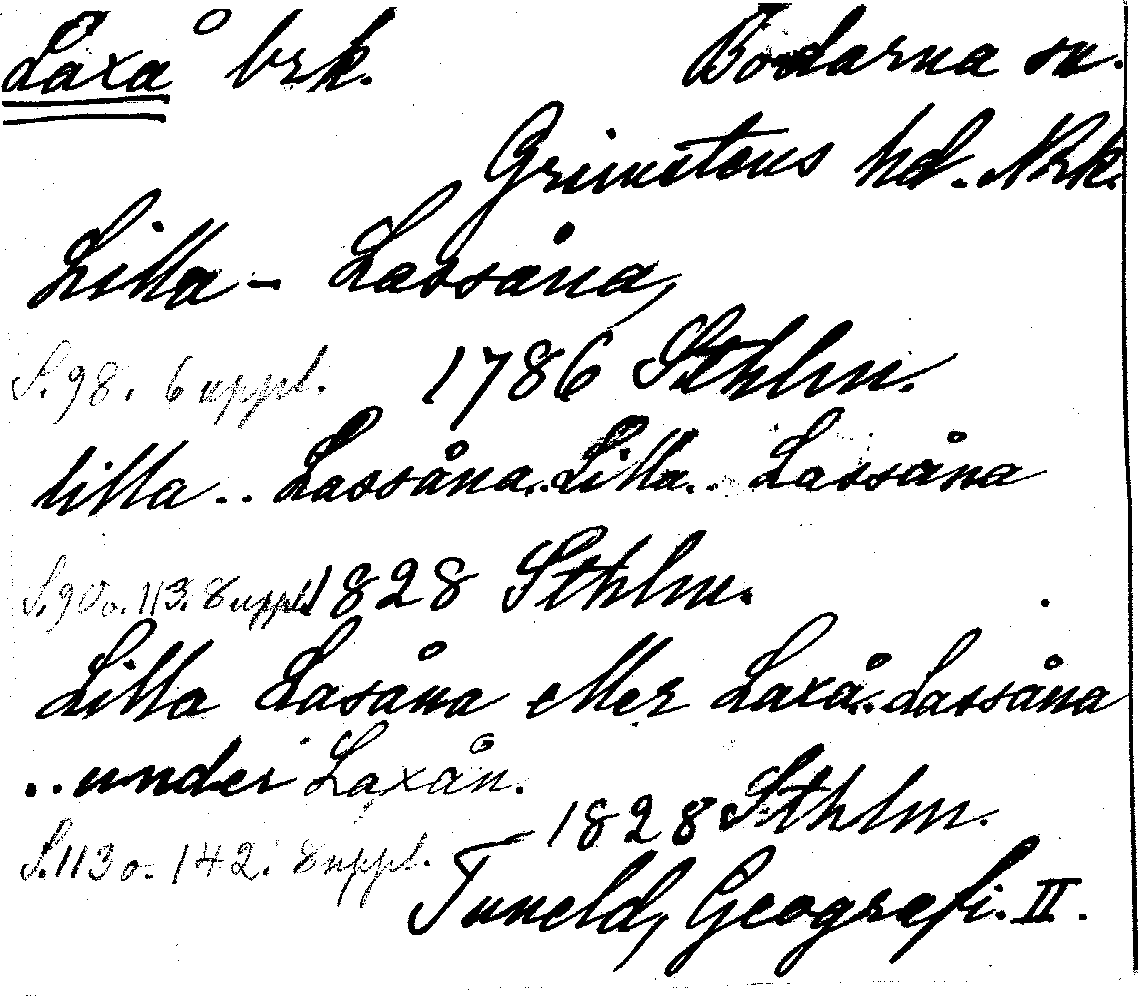 Laxå brk. Bodarna sn.
Grimstens hd. Nrk.
Lilla - Lassåna,
S. 98. 6 uppl. 1786 Sthlm.
lilla .. Lassåna .. Lilla .. Lassåna
S. 90 o. 113. 8 uppl. 1828 Sthlm.
Lilla Lasåna eller Laxå .. Lassåna
.. under Laxån.
1828 Sthlm.
S. 113 o. 142. 8 uppl.
Tuneld, Geografi. II.